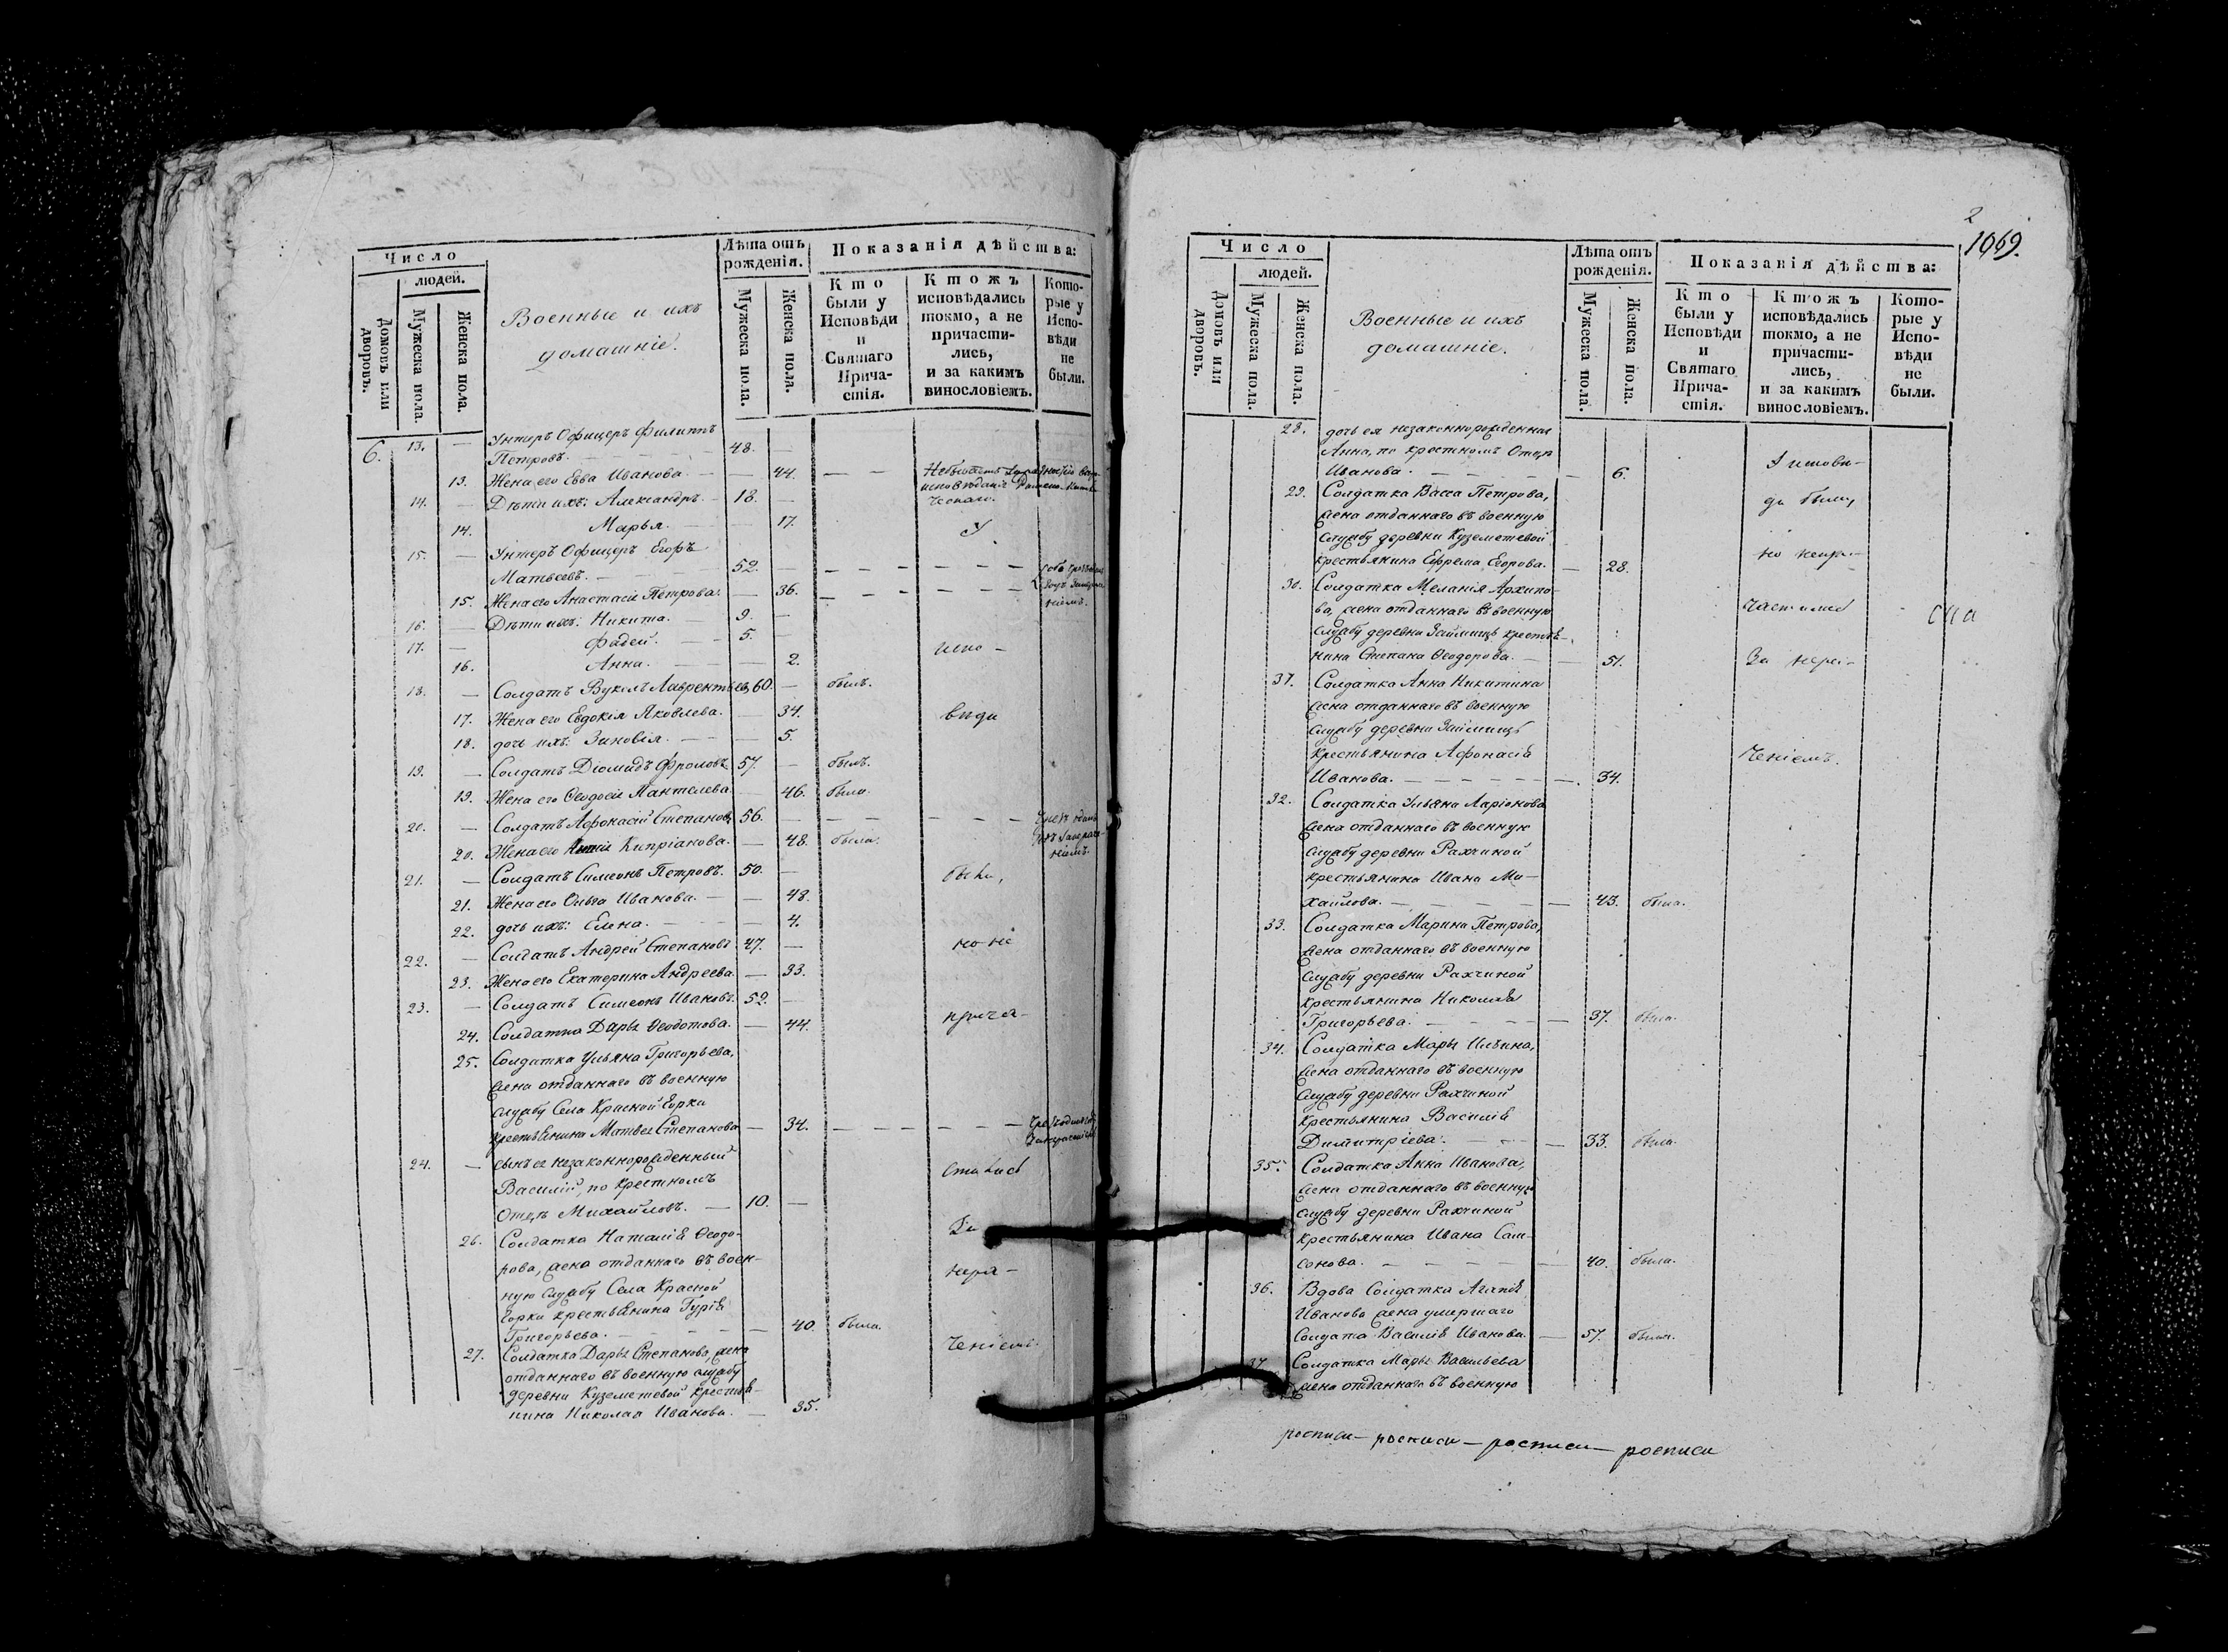 Число
людей.
Домовъ или дворовъ.
Мужеска пола.
Женска пола.
Военные и ихъ
домашніе.
Лѣта отъ
рожденія.
Мужеска пола.
Женска пола.
Показанія дѣйства:
Кто
были у
Исповѣди
и
Святаго
Прича-
стія.
Ктожъ
исповѣдались
токмо, а не
причасти-
лись,
и за какимъ
винословіемъ.
Кото-
рые у
Испо-
вѣди
не
были.
6. 13. — Унтеръ Офицеръ Филиппъ
Петровъ. — 48. —
13. Жена его Евва Иванова. — 44. — —
исповѣданія
14. — Дѣти ихъ: Александръ. — 18. —
14. Марья. — 17. У
15. — Унтеръ Офицеръ Егоръ
Матвеевъ. — 52. — — — — — —
15. Жена его Анастасія Петрова. — 36. — — — — —
16. — Дѣти ихъ: Никита. — 9. —
17. — Фадей. — 5. — испо-
16. Анна. — 2.
18. — Солдатъ Вуколъ Лаврентьев, 60. — былъ.
17. Жена его Евдокія Яковлева. — 34. вѣди
18. дочь ихъ: Зиновія. — 5.
19. — Солдатъ Діомидъ Фроловъ 57. — былъ.
19. Жена его Ѳеодосія Пантелева. 46. была.
20. — Солдатъ Афонасій Степановъ 56. — — — — —
20. Жена его Кипріанова. — 48. была.
21. — Солдатъ Симеонъ Петровъ. 50. — были,
21. Жена его Ольга Иванова. — 48.
22. дочь ихъ: Елена. — 4.
22. — Солдатъ Андрей Степановъ 47. — но не
23. Жена его Екатерина Андреева. — 33.
23. — Солдатъ Симеонъ Ивановъ. 52. —
24. Солдатка Дарья Ѳеодотова. — 44. прича-
25. Солдатка Ульяна Григорьева,
жена отданнаго въ военную
службу Села Красной Горки
крестьянина Матвея Степанова — 34. — — — — —
24. — сынъ ея незаконнорожденный
Василій, по крестномъ стились
Отцѣ Михайловъ. — 10. —
26. Солдатка Наталія Ѳеодо- За
рова, жена отданнаго въ воен-
ную службу Села Красной нера-
Горки крестьянина Гурія
Григорьева. — 40. была.
27. Солдатка Дарья Степанова, жена ченіемъ.
отданнаго въ военную службу
деревни Куземетевой крестья-
нина Николая Иванова. — 35.
2
1069.
Число
людей.
Домовъ или дворовъ.
Мужеска пола.
Женска пола.
Военные и ихъ
домашніе.
Лѣта отъ
рожденія.
Мужеска пола.
Женска пола.
Показанія дѣйства:
Кто
были у
Исповѣди
и
Святаго
Прича-
стія.
Ктожъ
исповѣдались
токмо, а не
причасти-
лись,
и за какимъ
винословіемъ.
Кото-
рые у
Испо-
вѣди
не
были.
28. дочь ея незаконнорожденная
Анна, по крестномъ Отцѣ
Иванова. — 6. У испове-
29. Солдатка Васса Петрова,
жена отданнаго въ военную ди были,
службу деревни Куземетевой
крестьянина Ефрема Егорова. — 28. но непри-
30. Солдатка Меланія Архипо-
ва, жена отданнаго въ военную частились
службу деревни Займищъ крестья-
нина Степана Ѳеодорова. — 51. За нера-
31. Солдатка Анна Никитина
жена отданнаго въ военную
службу деревни Займищъ
крестьянина Афонасія ченіемъ.
Иванова. — 34.
32. Солдатка Ульяна Ларіонова
жена отданнаго въ военную
службу деревни Рахчиной
крестьянина Ивана Ми-
хайлова. — 43. была.
33. Солдатка Марина Петрова,
жена отданнаго въ военную
службу деревни Рахчиной
крестьянина Николая
Григорьева. — 37. была.
34. Солдатка Марья Ильина,
жена отданнаго въ военную
службу деревни Рахчиной
крестьянина Василія
Димитріева. — 33. была.
35. Солдатка Анна Иванова,
жена отданнаго въ военную
службу деревни Рахчиной
крестьянина Ивана Сам-
сонова. — 40. была.
36. Вдова Солдатка Агапія
Иванова жена умершаго
Солдата Василія Иванова. — 57. была.
37. Солдатка Марья Васильева
жена отданнаго въ военную
росписи — росписи — росписи — росписи